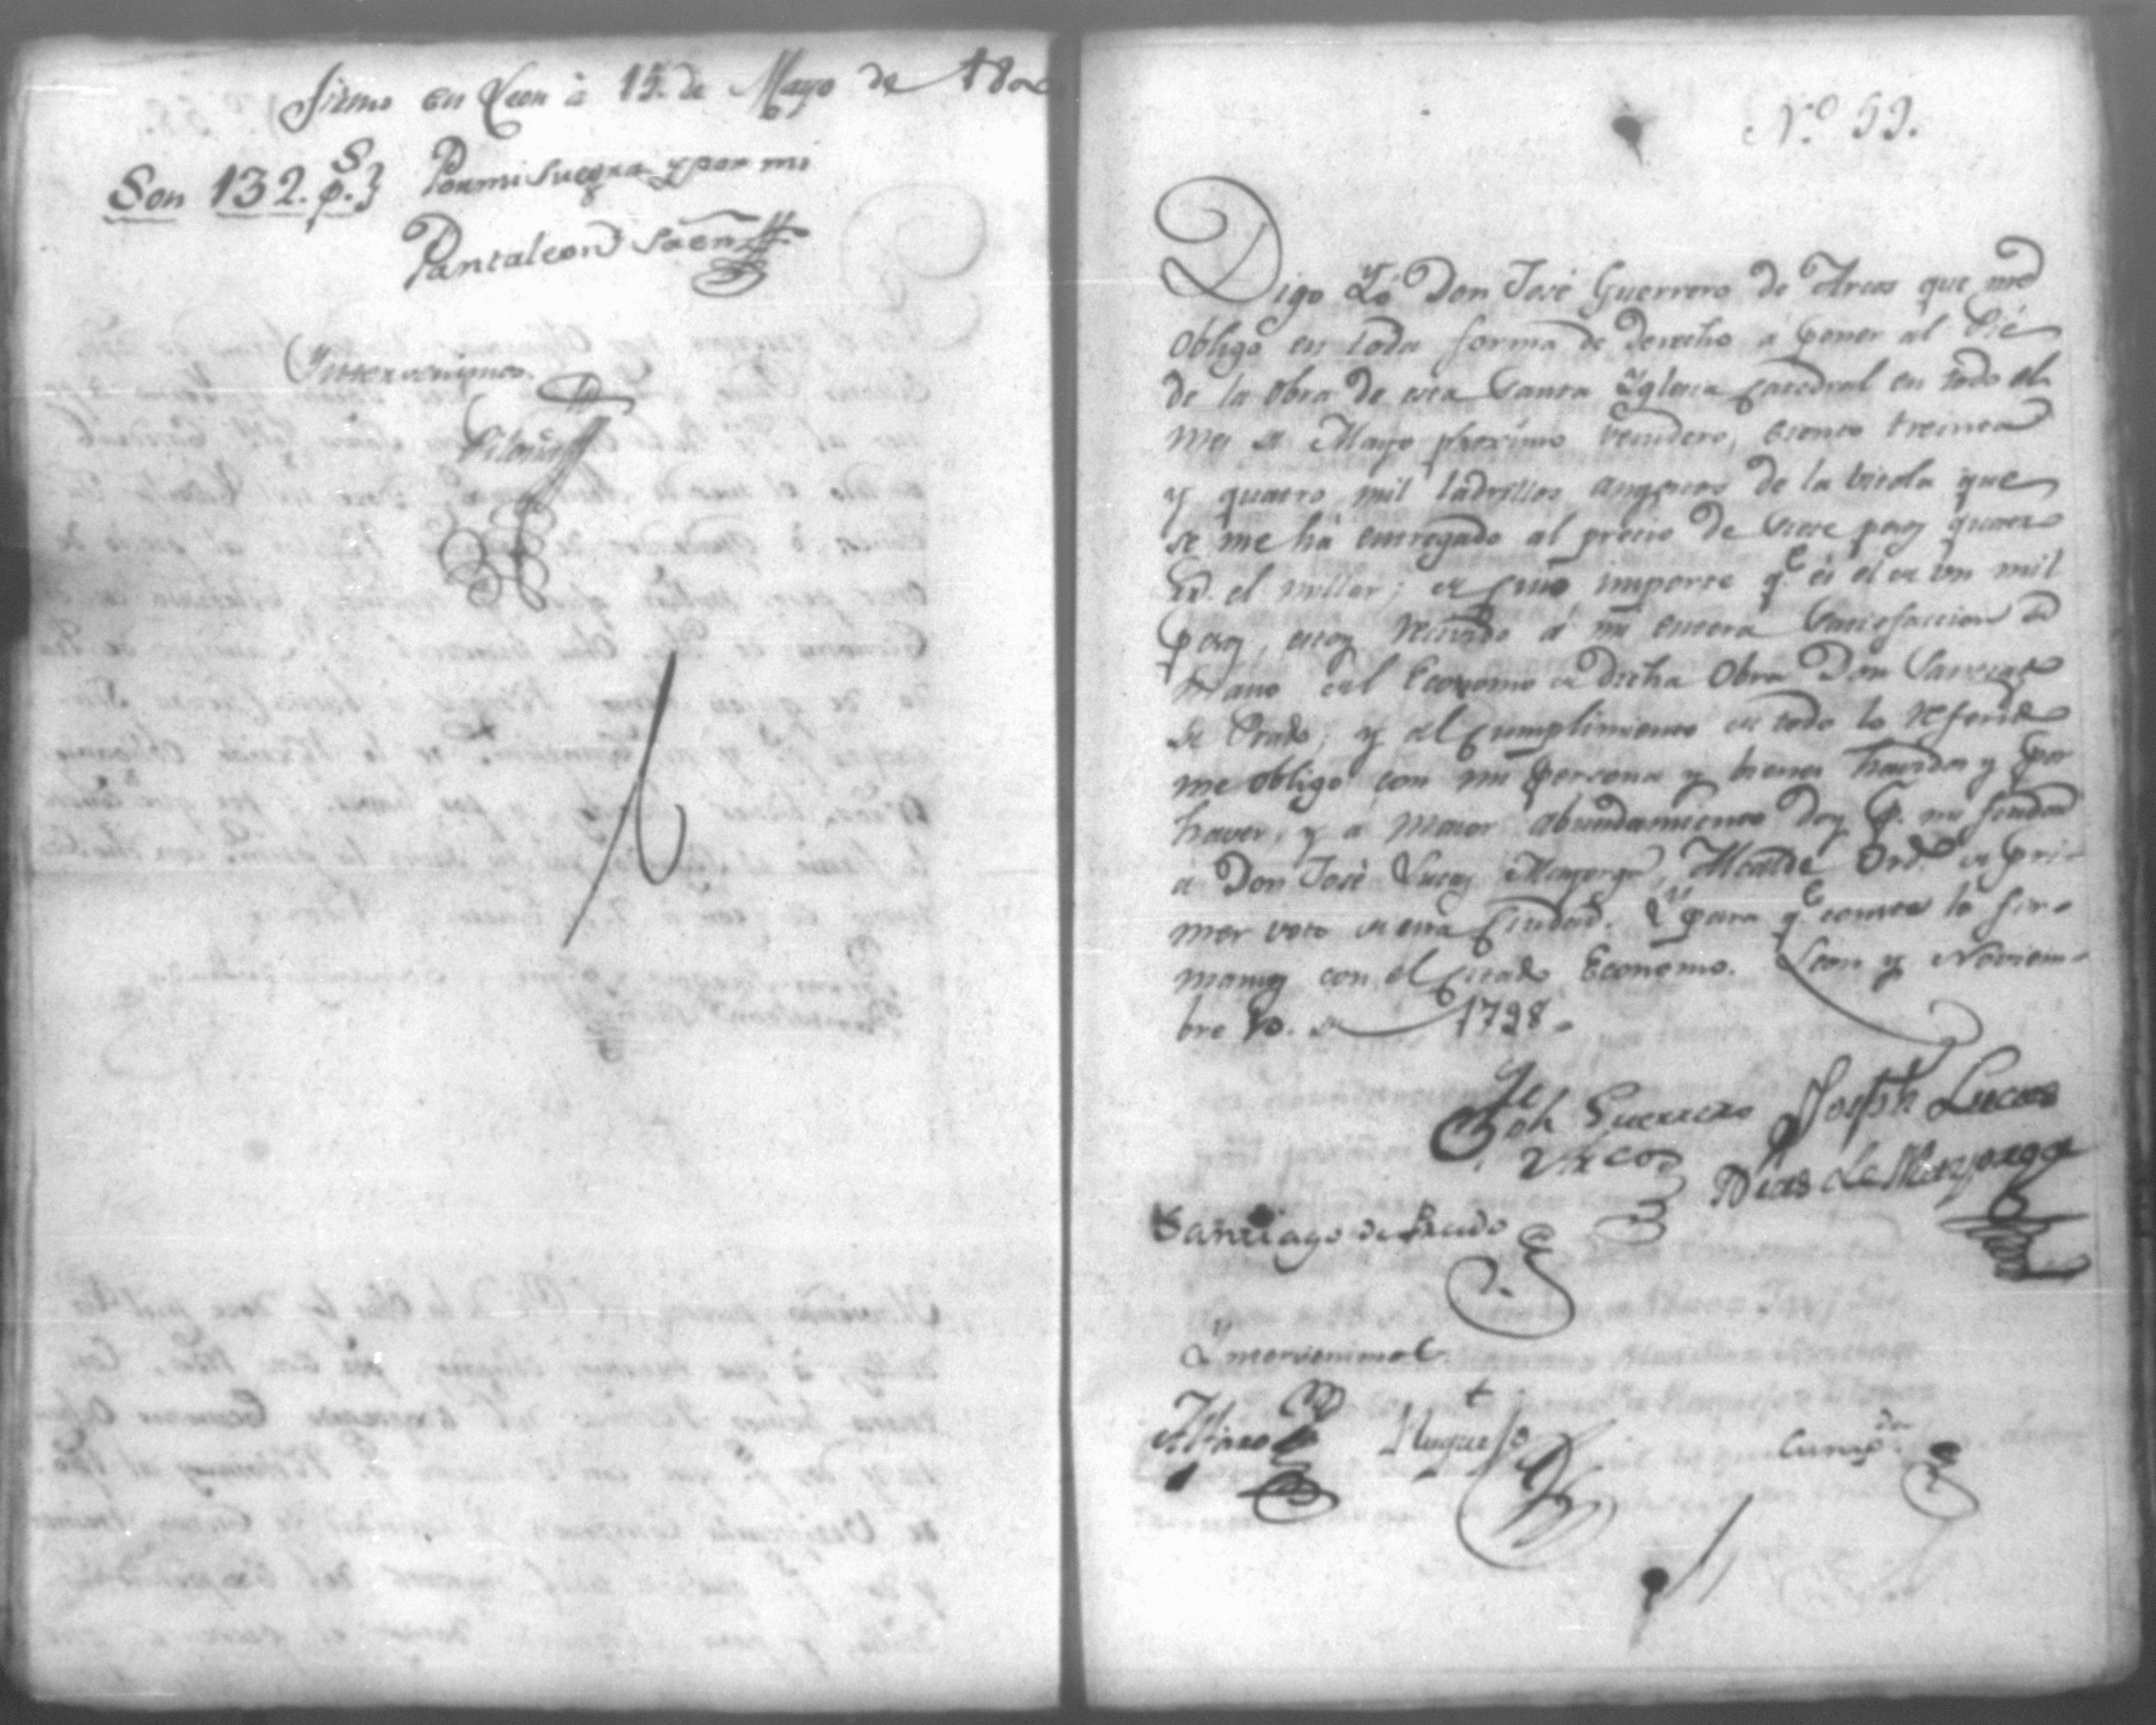 firmo en Leon à 15. de Mayo de 180
Son 132. p.s} Por mi suegra y por mi
Pantaleon Saenz
Yntervenimos.
Nº 59.
Digo Yo Don José Guerrero de Arcos que me
obligo en toda forma de derecho á poner al Pié
de la obra de esta Santa Yglesia Catedral en todo el
mes de Mayo proximo venidero, ciento treinta
y quatro mil ladrillos de la vitola que
se me há entregado al precio de siete pesos quatro
rr.s el millar; de cuio importe q.e es el de un mil
pesos, estoy recivido á mi entera satisfaccion de
mano del Economo de dicha Obra Don Santiago
de Prado; y al cumplimiento de todo lo referido
me obligo con mi persona y bienes havidos y por
haver, y a maior abundamiento doy p.r mi fiador
a Don José Lucas Mayorga, Alcalde Ord.o de pri-
mer voto de esta Ciudad. Y para q.e conste lo fir-
mamos con el citado Economo. Leon y Noviem-
bre 10. de 1798.
Josh Guerrero Joseph Lucas
Arcos Dias de Mayorga
Santiago de Prado
Yntervenimos.
Alfaro Huguet